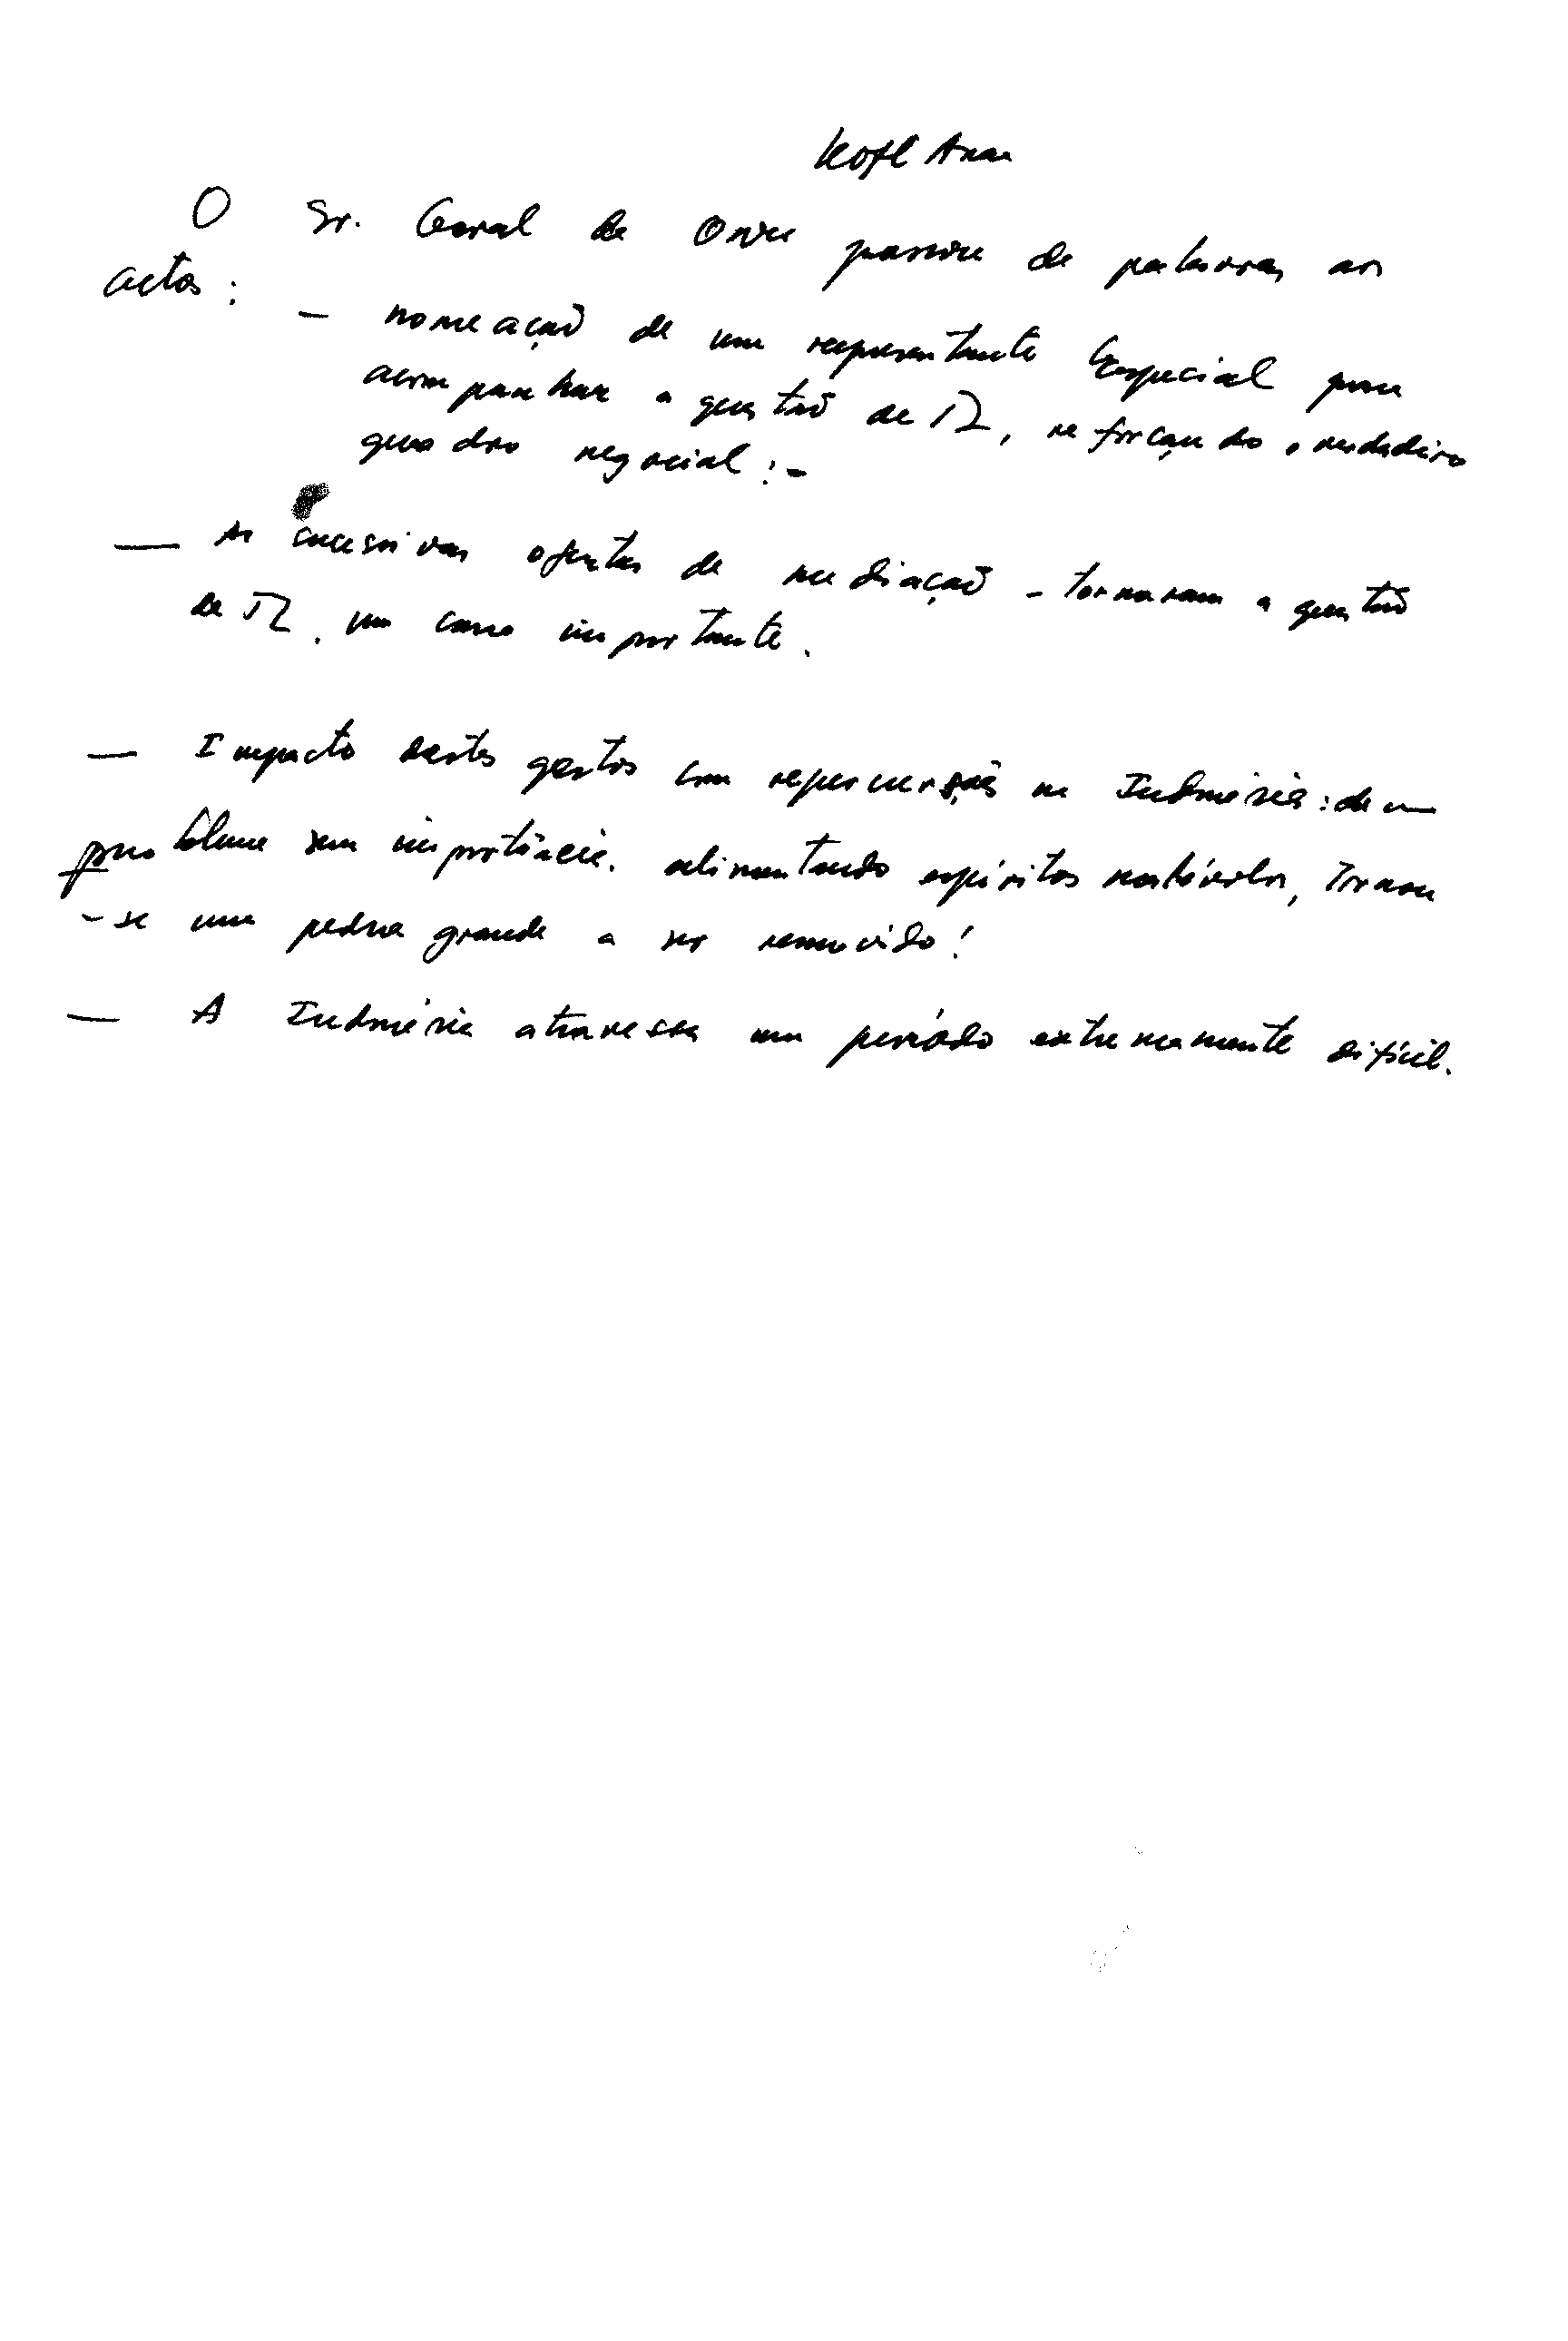 Kofi Anan
O Sr. Geral da ONU passou de palavras aos
actos: - nomeação de um representante Especial para
acompanhar a questão de TL, reforçando o verdadeiro
quadro negocial:-
— As sucessivas ofertas de mediação - tornaram a questão
de TL. um caso importante.
— Impacto destes gestos com repercussões na Indonésia: de um
problema sem importância. alimentando espíritos notáveis, tornou
-se uma pedra grande a ser removido!
— A Indonésia atravessa um período extremamente difícil.